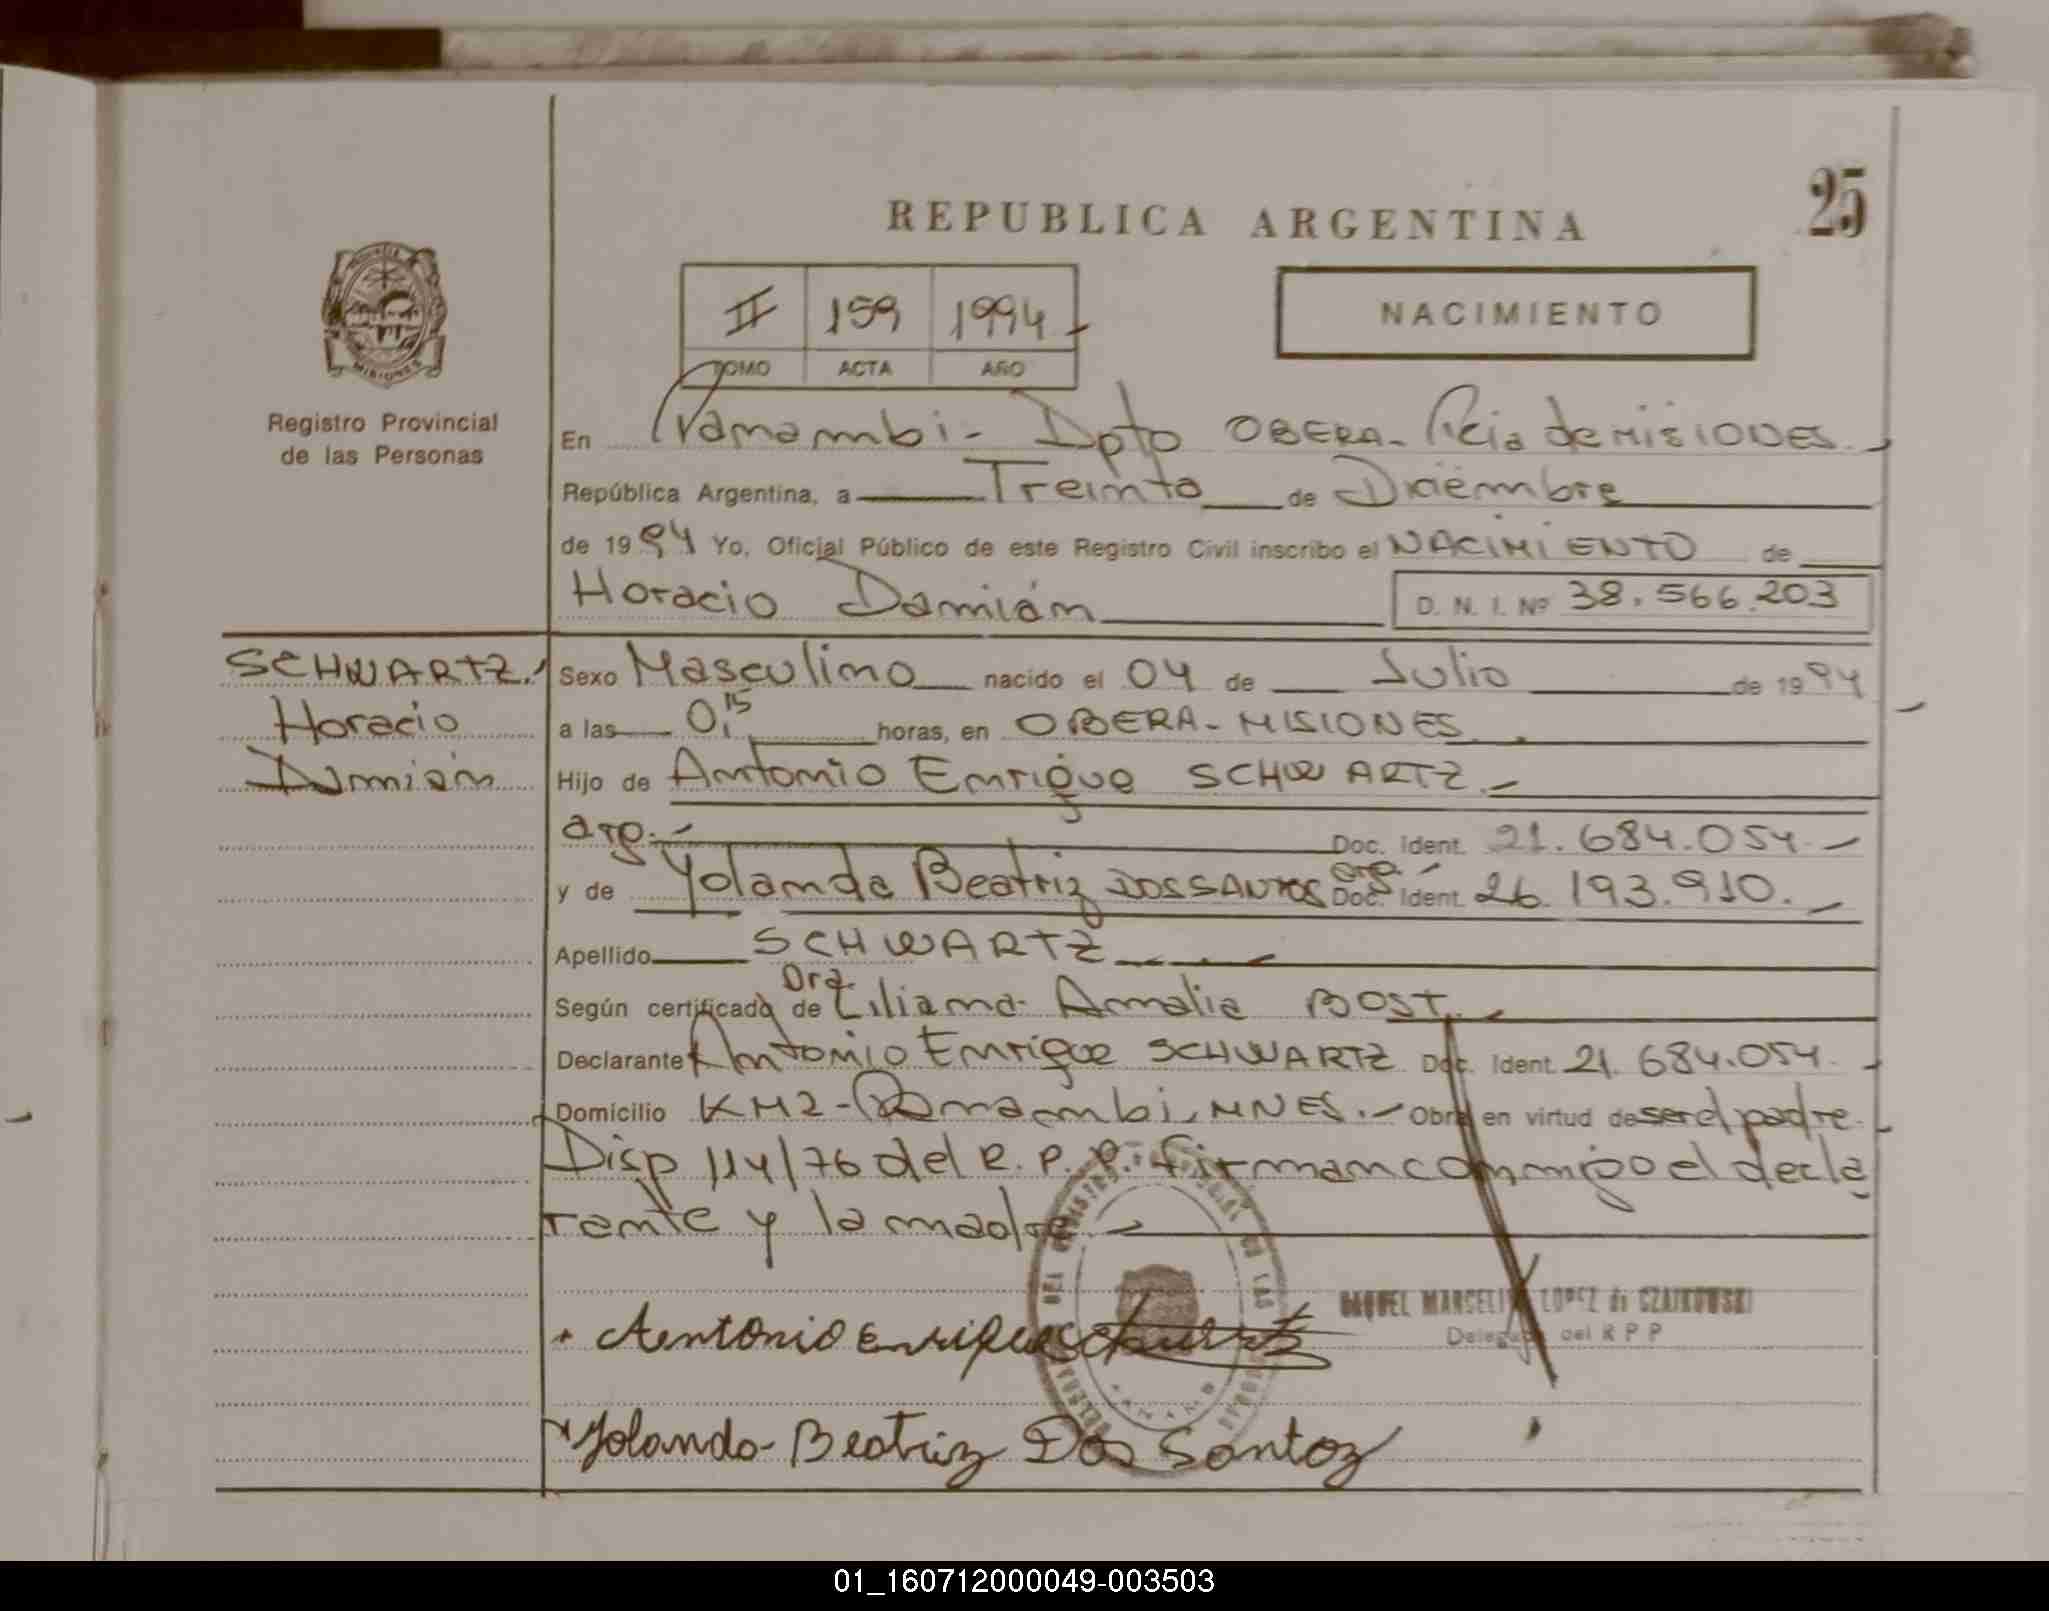 25
REPUBLICA ARGENTINA
II 159 1994
TOMO ACTA AÑO
NACIMIENTO
PROVINCIA DE
MISIONES
Registro Provincial
de las Personas
En Panambi - Dpto OBERA - Pcia de MISIONES
República Argentina, a Treinta de Diciembre
de 1994 Yo, Oficial Público de este Registro Civil inscribo el NACIMIENTO de
Horacio Damián D. N. I. Nº 38.566.203
SCHWARTZ
Horacio
Damián
Sexo Masculino nacido el 04 de Julio de 1994
a las 0,15 horas, en OBERA - MISIONES
Hijo de Antonio Enrique SCHWARTZ
arg. Doc. Ident. 21.684.054
y de Yolanda Beatriz DOS SANTOS arg. Doc. Ident. 26.193.910.
Apellido SCHWARTZ
Según certificado de Dra. Liliana Amalia BOST
Declarante Antonio Enrique SCHWARTZ Doc. Ident. 21.684.054
Domicilio KM 2 - Panambi, MNES. Obra en virtud de ser el padre
Disp 114/76 del R. P. P. firman conmigo el decla
rante y la madre
RAQUEL MARCELINA LOPEZ de CZAIKOWSKI
Delegada del R P P
Antonio Enrique Schwartz
Yolanda Beatriz Dos Santoz
01_160712000049-003503